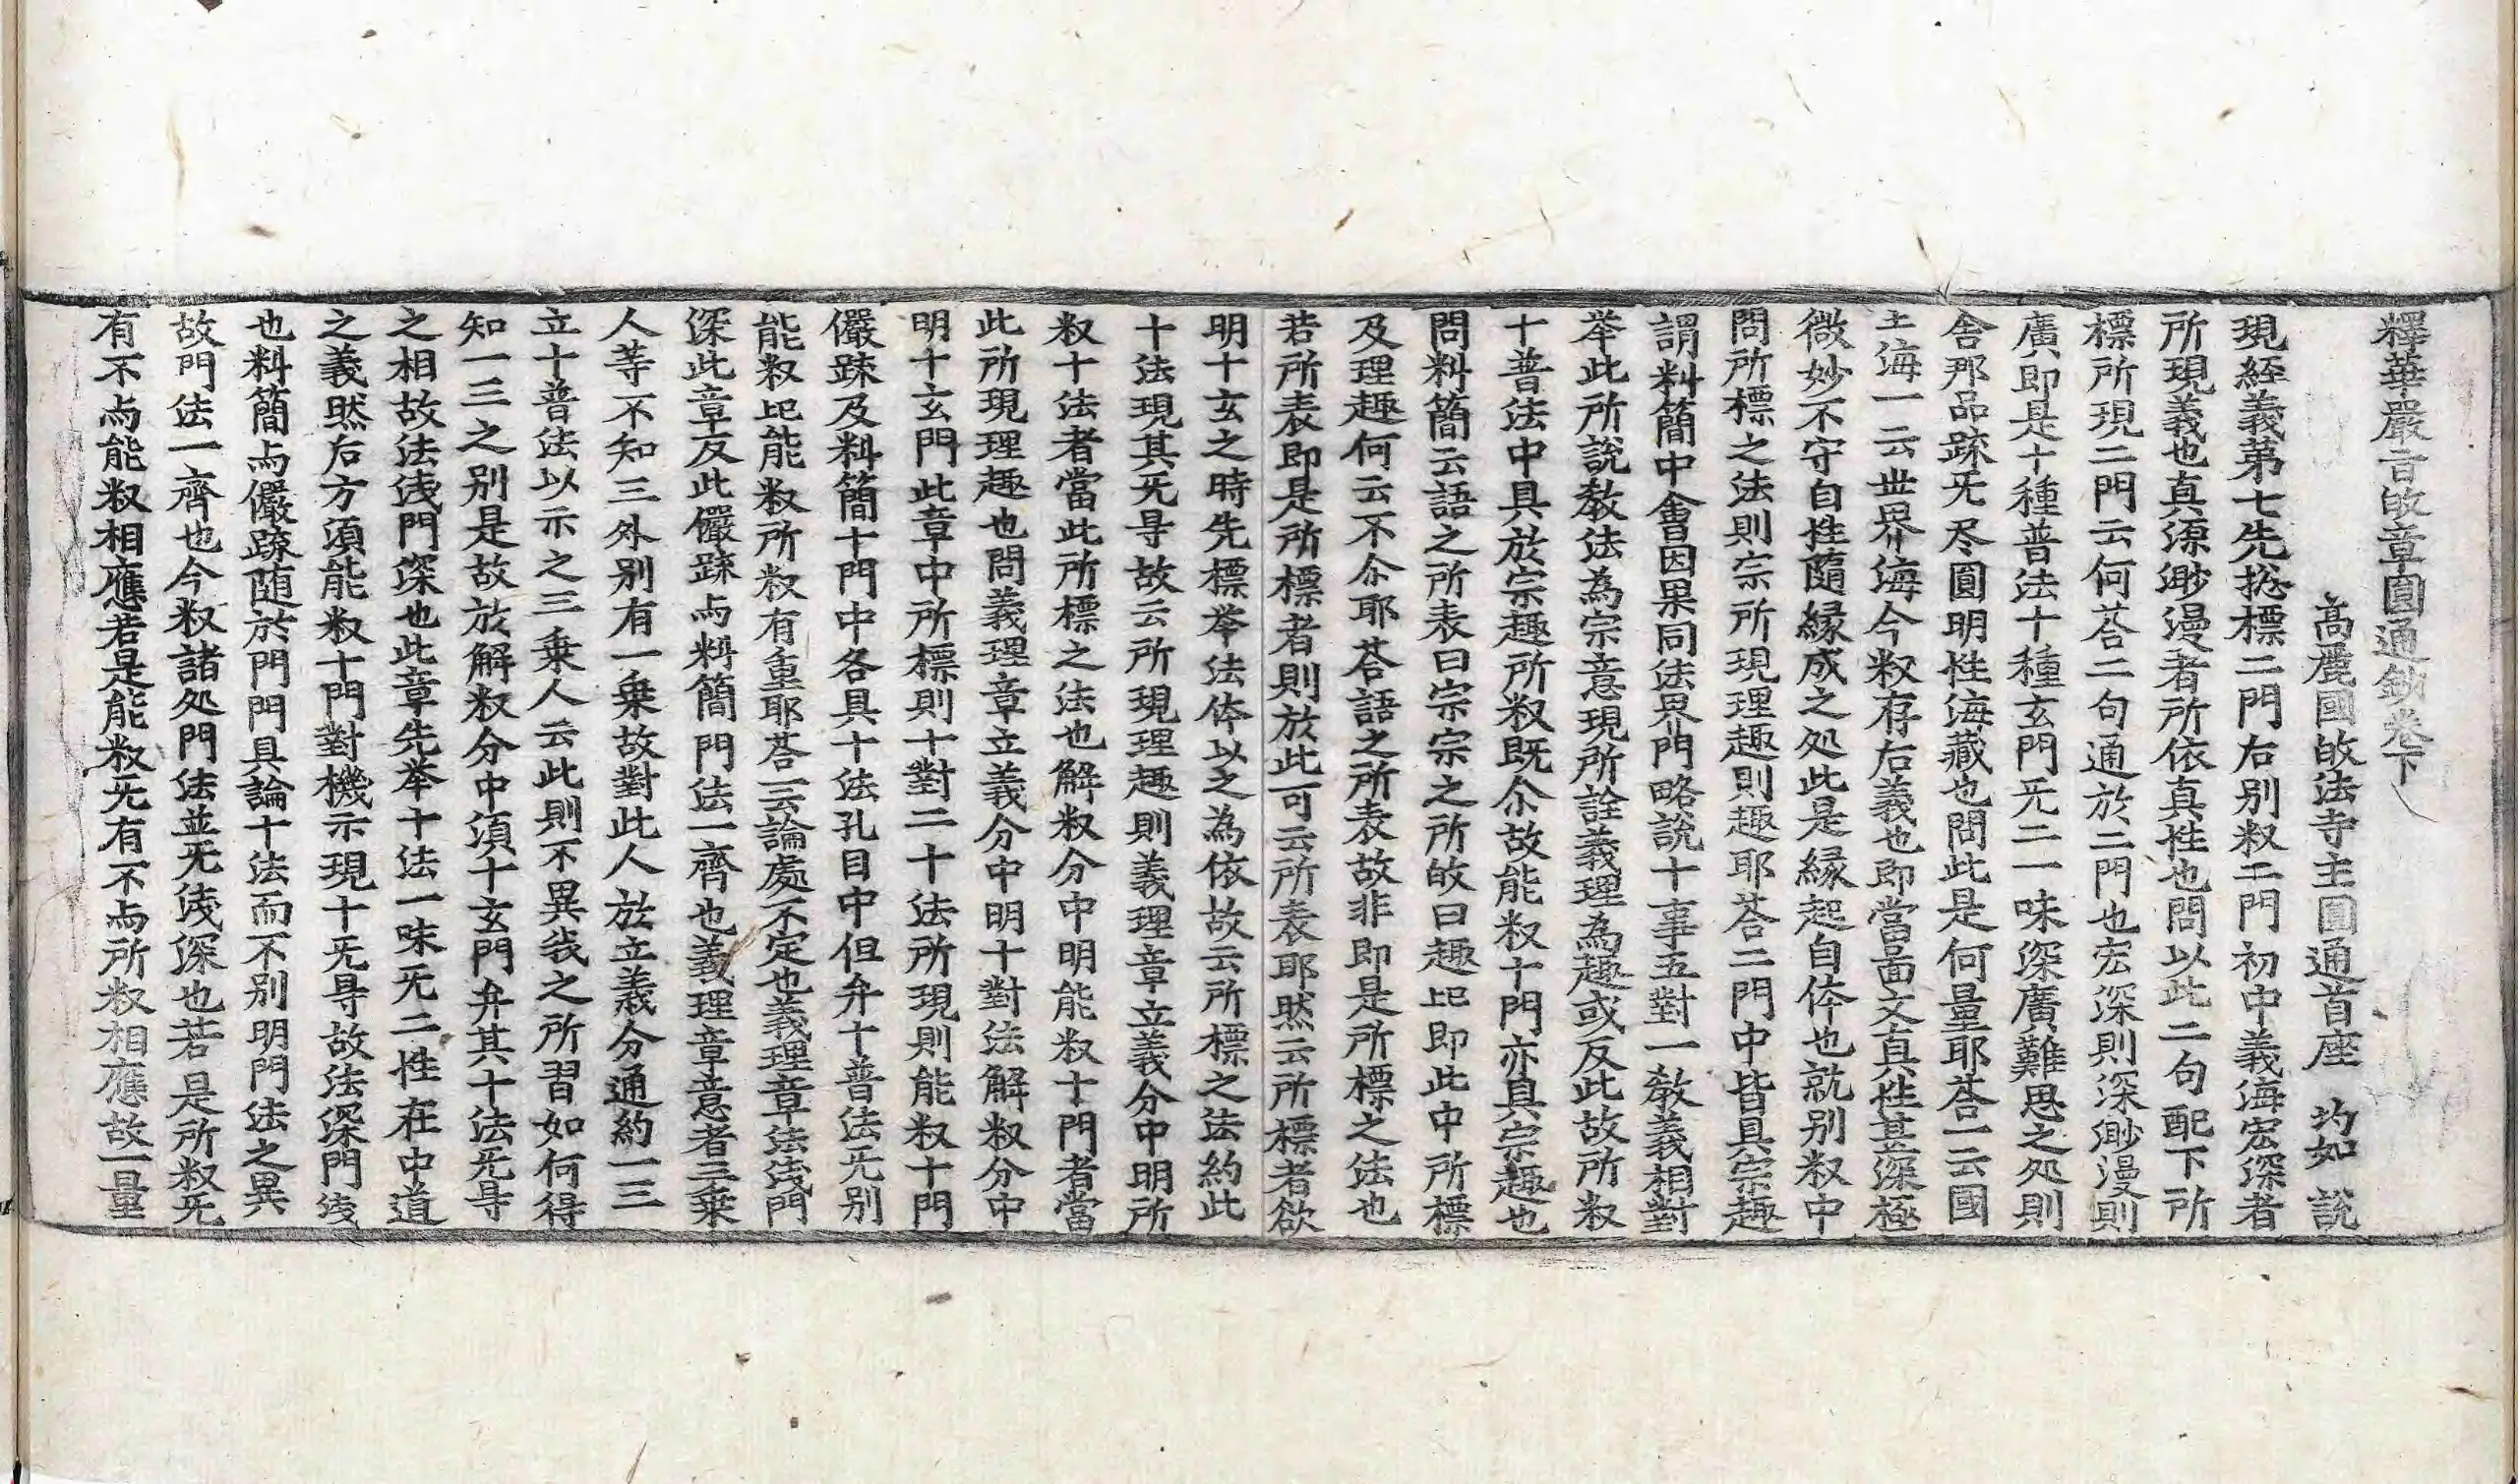 釋華嚴旨㱕章圓通鈔卷下
髙麗國㱕法寺主圓通首座 均如 說
現経義苐七先捴標二門右别㪅二門初中義海宏深者
所現義也真源渺漫者所依真性也問以此二句配下所
標所現二門云何荅二句通於二門也宏深則深渺漫則
廣即是十種普法十種玄門旡二一味深廣難思之処則
舎那品䟽旡尽圓明性海藏也問此是何量耶荅一云國
土海一云世界海今㪅存右義也即當啚文真性甚深極
微妙不守自性隨縁成之処此是縁起自体也就别㪅中
問所標之法則宗所現理趣則趣耶荅二門中皆具宗趣
謂料簡中會因果同法界門略說十事五對一教義相對
举此所說教法為宗意現所詮義理為趣或反此故所㪅
十普法中具於宗趣所㪅既尒故能㪅十門亦具宗趣也
問料簡云語之所表曰宗宗之所㱕曰趣𣥂即此中所標
及理趣何云不尒耶荅語之所表故非即是所標之法也
若所表即是所標者則於此可云所表耶然云所標者欲
明十玄之時先標举法体以之為依故云所標之法約此
十法現其旡㝵故云所現理趣則義理章立義分中明所
㪅十法者當此所標之法也解㪅分中明能㪅十門者當
此所現理趣也問義理章立義分中明十對法解㪅分中
明十玄門此章中所標則十對二十法所現則能㪅十門
儼䟽及料簡十門中各具十法孔目中但弁十普法旡别
能㪅𣥂能㪅所㪅有重耶荅云論處不定也義理章法浅門
深此章反此儼䟽与料簡門法一齊也義理章意者三乗
人䒭不知三外别有一乗故對此人於立義分通約一三
立十普法以示之三乗人云此則不異我之所習如何得
知一三之别是故於解㪅分中湏十玄門弁其十法旡㝵
之相故法浅門深也此章先举十法一味旡二性在中道
之義然右方湏能㪅十門對機示現十旡㝵故法深門浅
也料簡与儼䟽随於門門具論十法而不别明門法之異
故門法一齊也今㪅諸処門法並旡浅深也若是所㪅旡
有不与能㪅相應若是能㪅旡有不与所㪅相應故一量